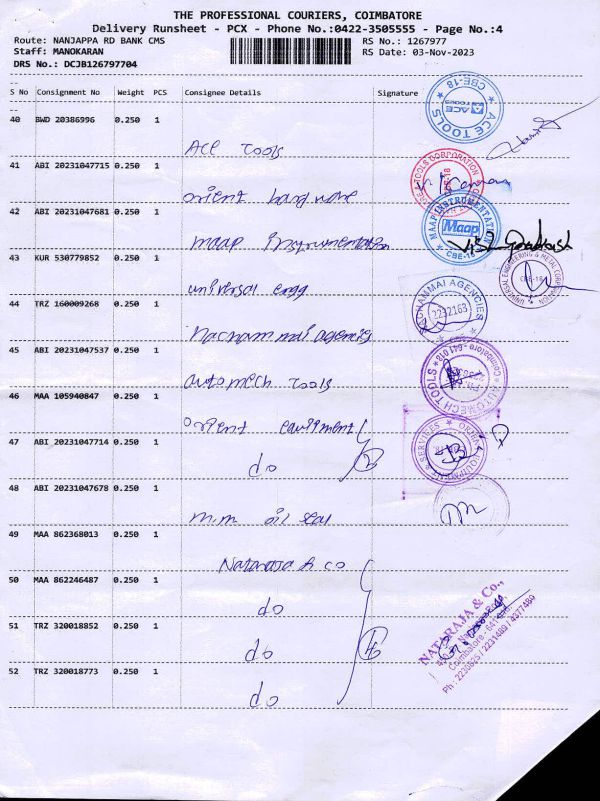 THE PROFESSIONAL COURIERS, COIMBATORE
Delivery Runsheet - PCX - Phone No.:0422-3505555 - Page No.:4
Route: NANJAPPA RD BANK CMS
RS No.: 1267977
Staff: MANOKARAN
RS Date: 03-Nov-2023
DRS No.: DCJB126797704
S No Consignment No Weight PCS Consignee Details Signature
40 BWD 20386996 0.250 1
ACE TOOLS
41 ABI 20231047715 0.250 1
orient hardware
42 ABI 20231047681 0.250 1
maap instrumentation
43 KUR 530779852 0.250 1
universal engg
44 TRZ 160009268 0.250 1
Nachammai agencies
45 ABI 20231047537 0.250 1
automech tools
46 MAA 105940847 0.250 1
orient equipment
47 ABI 20231047714 0.250 1
do
2
48 ABI 20231047678 0.250 1
m.m oil seal
49 MAA 862368013 0.250 1
Nataraja & co
50 MAA 862246487 0.250 1
do
51 TRZ 320018852 0.250 1
do
4
52 TRZ 320018773 0.250 1
do
CBE-18
ACE TOOLS
ACE
TOOLS
TOOLS CORPORATION
MAAP INSTRUMENTATION
Maap
CBE-18
UNIVERSAL ENGINEERING & METAL CORPORATION
CBE-18
NACHAMMAI AGENCIES
2232163
Coimbatore - 641 018
AUTOMECH TOOLS
ORIENT EQUIPMENT & SERVICES
NATARAJA & Co.,
Coimbatore - 641
Ph : 2230625 / 2231489 / 4377489